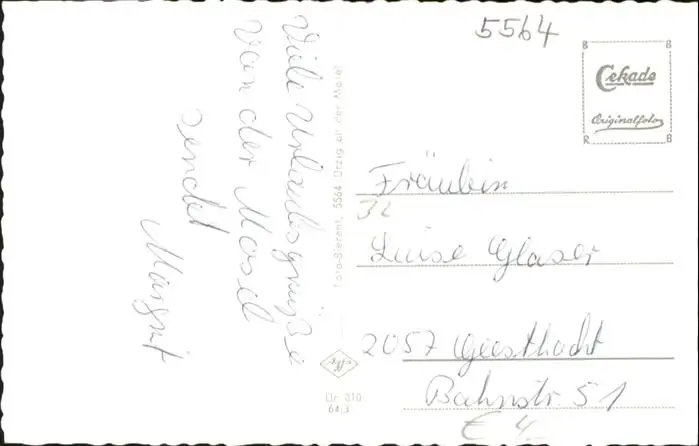 5564
Viele Urlaubsgrüße
von der Mosel
sendet
Margrit
Foto-Bierent, 5564 Ürzig an der Mosel
Agfa
Ur 010
64/3
B B
Cekade
Originalfoto
R B
Fräulein
32
Luise Glaser
2057 Geesthacht
Bahnstr 51
€ 4